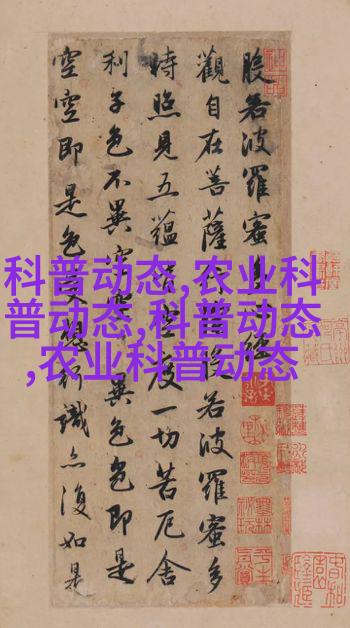 般若波羅蜜多心經
觀自在菩薩行般若波羅蜜多
時照見五蘊皆空度一切苦厄舍
利子色不異空異色色即是
空空即是色受想行識亦復如是
科普动态,农业科
普动态,科普动态
,农业科普动态